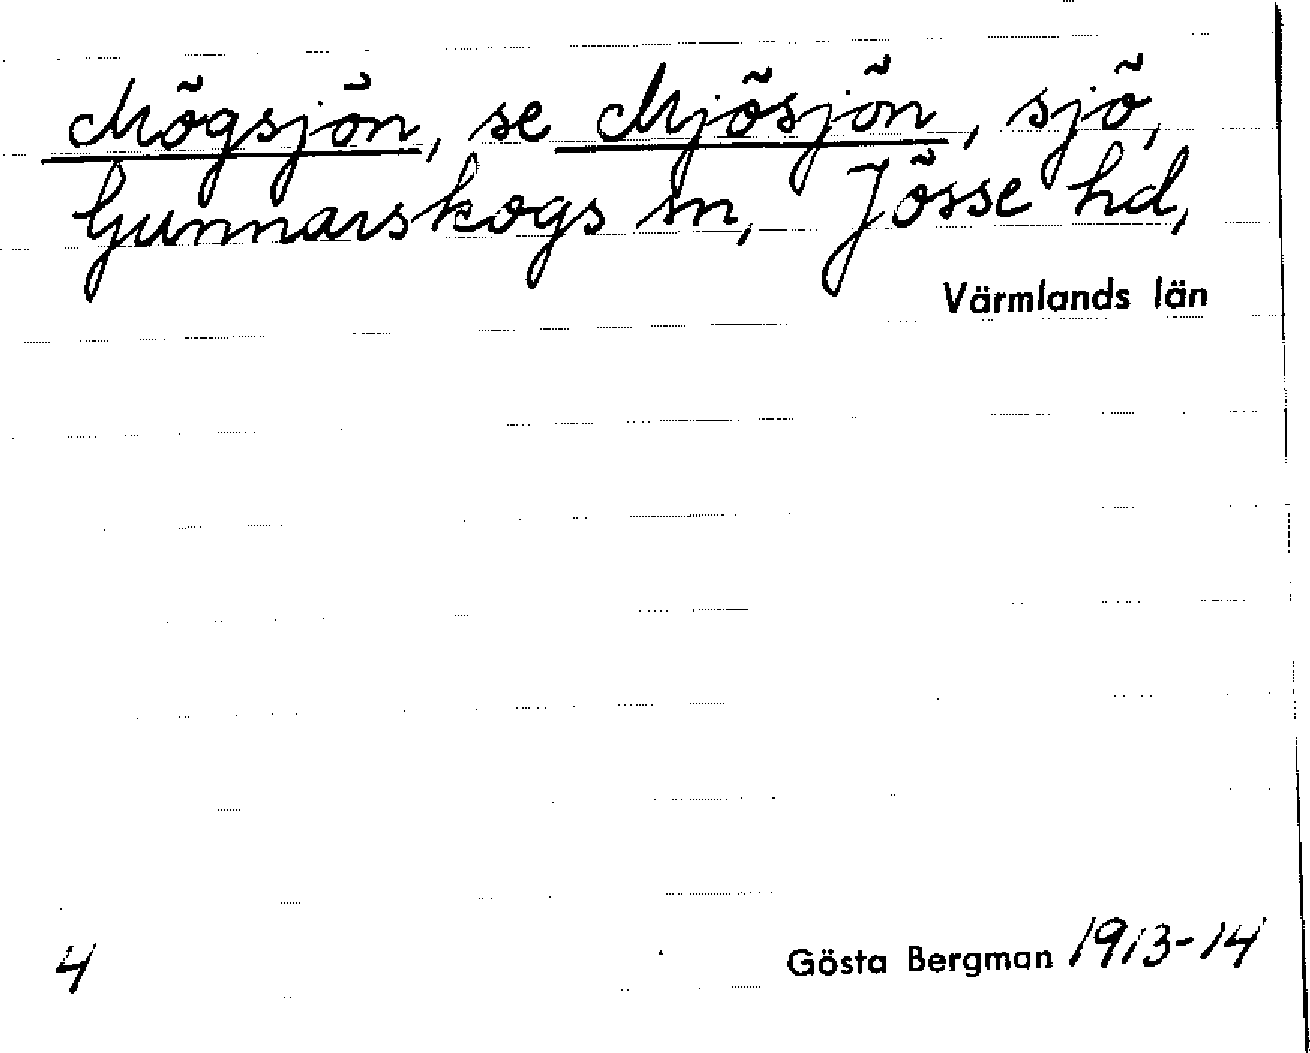 Mögsjön, se Mjösjön, sjö,
Gunnarskogs sn, Jösse hd,
Värmlands län
4
Gösta Bergman 1913-14